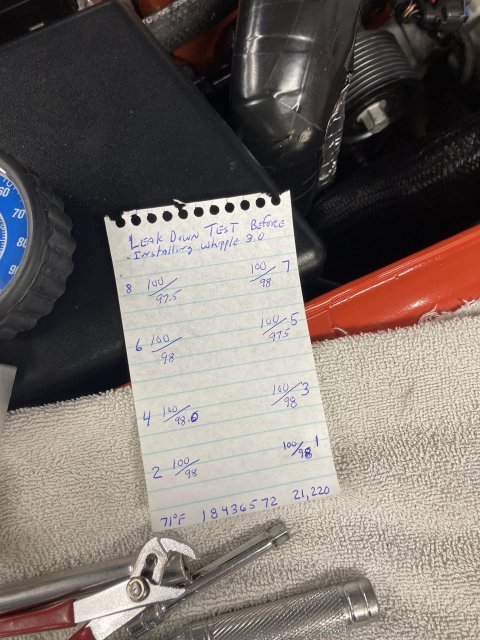 LEAK DOWN TEST BEFORE
Installing Whipple 3.0
8 100/97.5 100/98 7
6 100/98 100/97.5 5
4 100/98.0 100/98 3
2 100/98 100/98 1
71°F 18436572 21,220
60
70
80